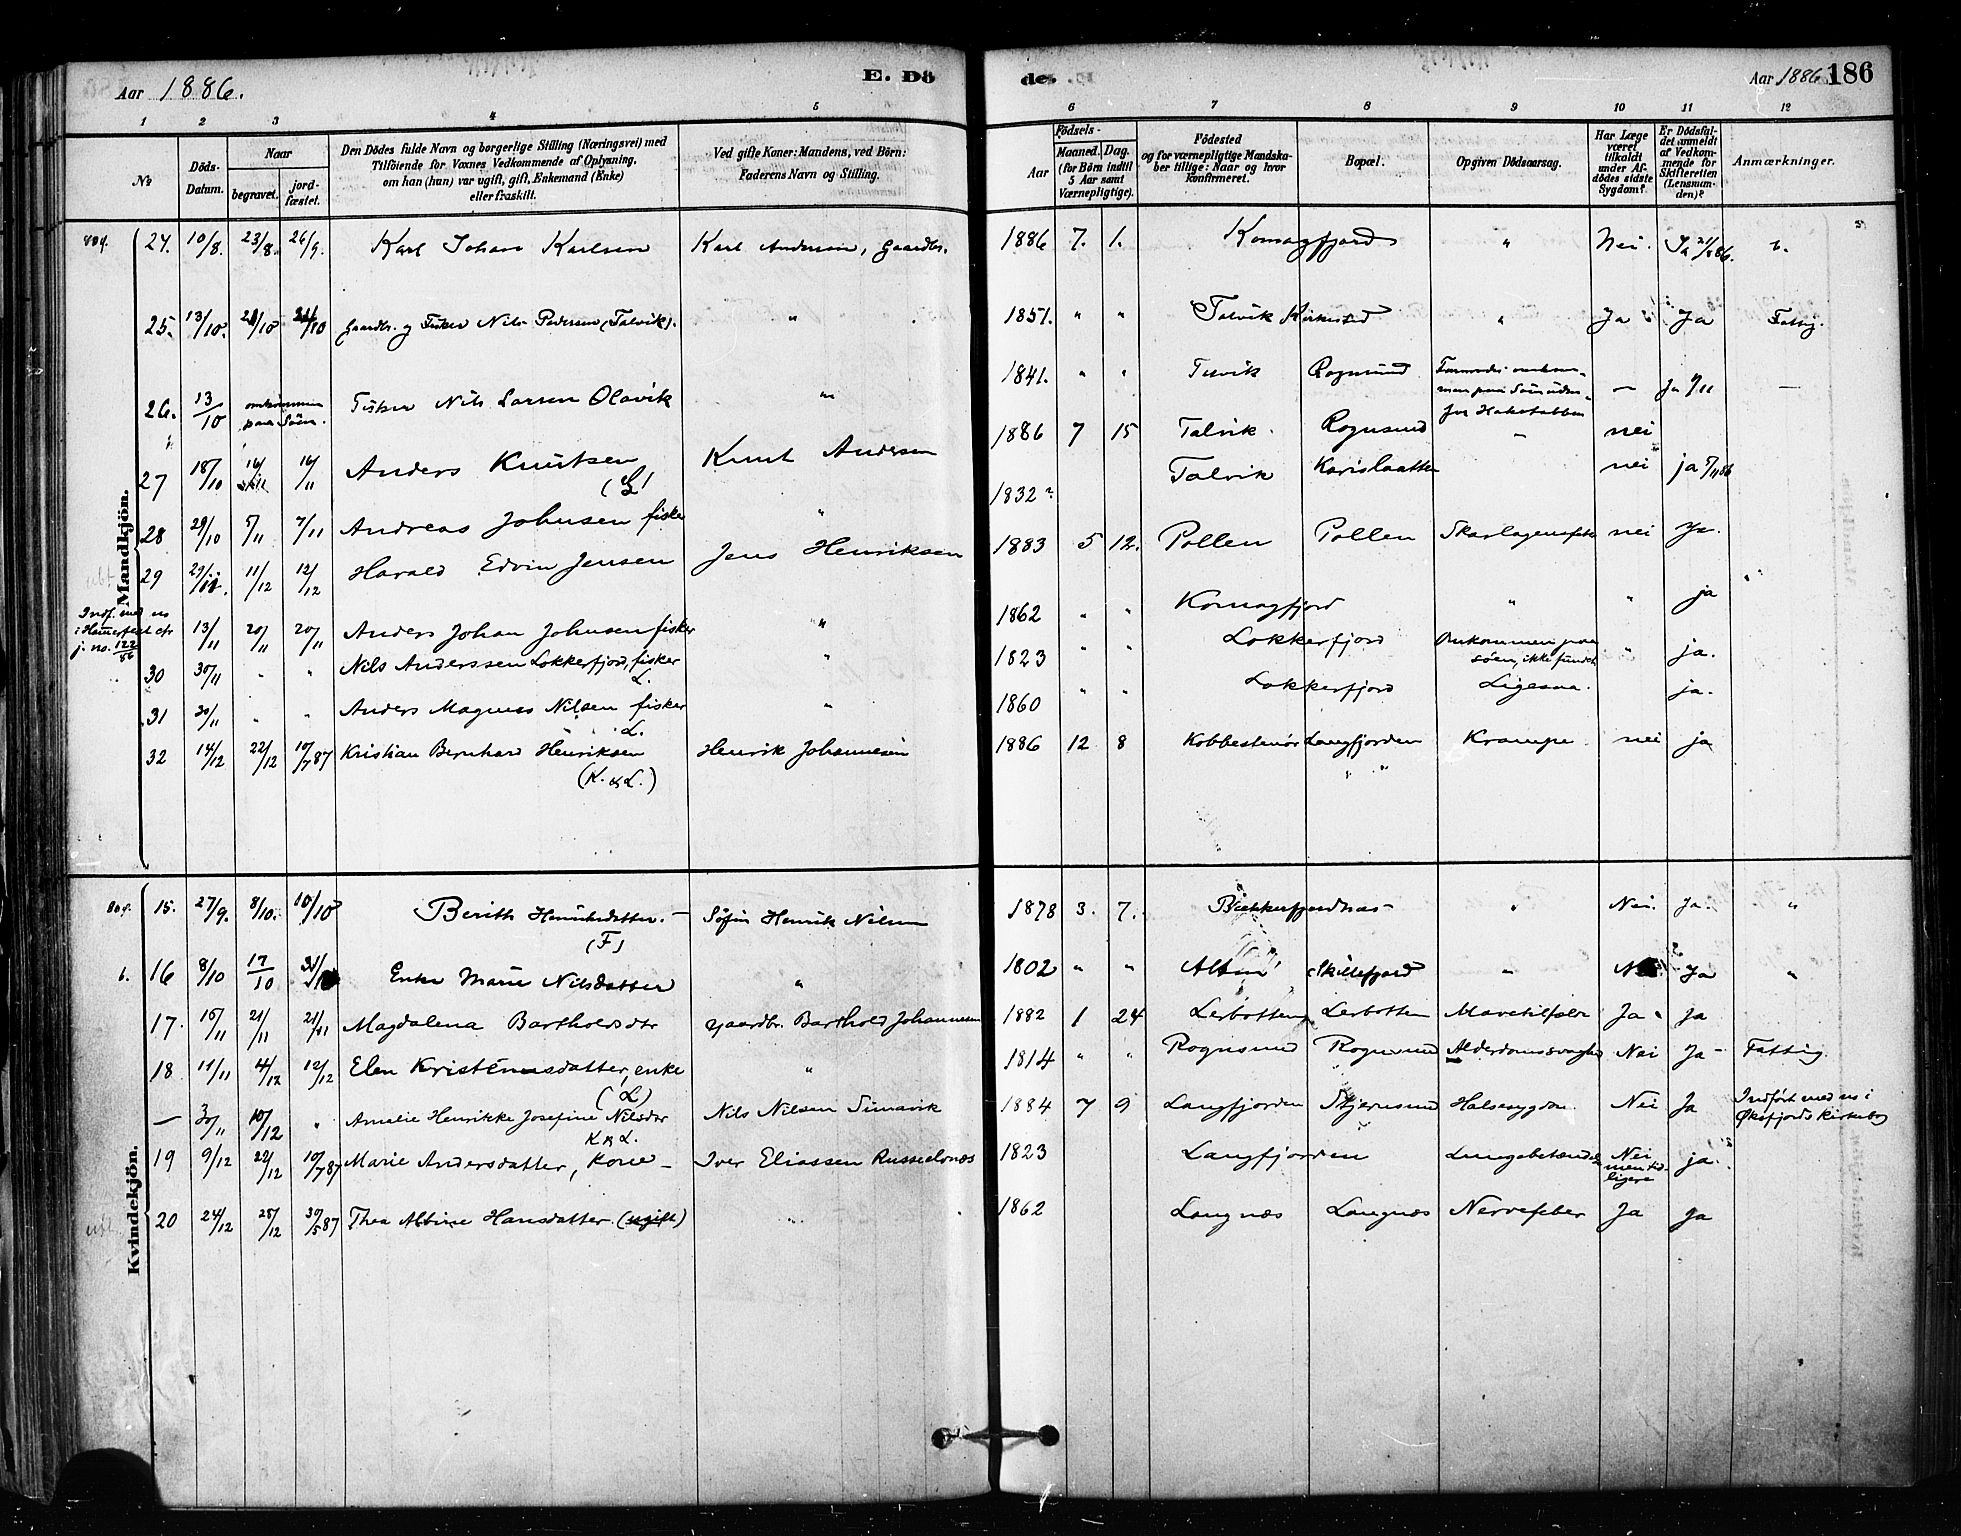 Aar 1886.
E. Dö
des.
Aar 1886
186
1 2 3 4 5 6 7 8 9 10 11 12
No
Döds-
Datum.
Naar
begravet.
jord-
fæstet.
Den Dödes fulde Navn og borgerlige Stilling (Næringsvei) med
Tilföiende for Voxnes Vedkommende af Oplysning,
om han (hun) var ugift, gift, Enkemand (Enke)
eller fraskilt.
Ved gifte Koner: Mandens, ved Börn:
Faderens Navn og Stilling.
Födsels-
Aar
Maaned. Dag.
(for Börn indtil
5 Aar samt
Værnepligtige).
Födested
og for værnepligtige Mandska-
ber tillige: Naar og hvor
konfirmeret.
Bopæl.
Opgiven Dödsaarsag.
Har Læge
været
tilkaldt
under Af-
dödes sidste
Sygdom?
Er Dödsfal-
det anmeldt
af Vedkom-
mende for
Skifteretten
(Lensman-
den)?
Anmærkninger.
Mandkjön.
24. 10/8. 23/8. 26/9. Karl Johan Karlsen Karl Andersen, Gaardbr. 1886 7. 1. Komagfjord " Nei.
25. 13/10. Gaardbr. og Fisker Nils Pedersen (Talvik). " 1851. " " Talvik Kirkested " Ja Ja Fattig.
26. 13/10 omkommen paa Söen. Fisker Nils Larsen Olavik " 1841. " " Rognsund — Ja —
27 18/10 14/11 Anders Knutsen Knut Andersen 1886 7 15 Talvik. Rognsund — nei
(L)
28 29/10 5/11 7/11 Andreas Johnsen fisker " 1832? Talvik nei ja
29 11/12 12/12 Harald Edvin Jensen Jens Henriksen 1883 5 12. Pollen Pollen nei Ja.
Indf. med no
i Hammerfest
j. no. 122/86
13/11 20/11 20/11 Anders Johan Johnsen fisker " 1862 " " Komagfjord " " ja
30 30/11 " " Nils Anderssen Lokkerfjord, fisker " 1823 " " Lokkerfjord Omkommen paa
söen, ikke fundet " ja.
L.
31 30/11 " " Anders Magnus Nilsen fisker " 1860 " " Lokkerfjord Ligesaa. ja.
L.
32 14/12 22/12 10/7 87 Kristian Bernhard Henriksen Henrik Johannesen 1886 12 8 Langfjorden Krampe nei ja
(K. og L.)
Kvindekjön.
15. 27/9. 8/10. 10/10 Berith Henriksdatter. — Söfin Henrik Nilsen 1878 3. 7. " Nei. Ja. "
(F)
16 8/10 17/10 Enke Marie Nilsdatter " 1802 " " Alten Skillefjord " Ja "
17. 15/11 21/11 21/11 Magdalena Bartholdsdtr gaardbr. Barthold Johannesen 1882 1 24 Lerbotten Lerbotten Ja. Ja
18 11/11 4/12 12/12 Elen Kristensdatter, enke " 1814 " " Rognsund Rognsund Alderdomssvaghed Nei Ja Fattig.
(L)
— 3/11 10/12 " Amalie Henrikke Josefine Nilsdtr Nils Nilsen Simavik 1884 7 9 Langfjorden Stjernsund Halssygdom. Nei Ja Indført med no i
Øksfjords Kirkebog
K og L.
19 9/12 22/12 10/7 87 Marie Andersdatter, Kone — Iver Eliassen Russelvnæs 1823 Langfjorden Lungebetændelse Nei
men tid-
ligere ja.
20 24/12 28/12 30/5 87 Thea Albine Hansdatter. (ugift) " 1862 Langnæs Langnæs Nervefeber Ja Ja